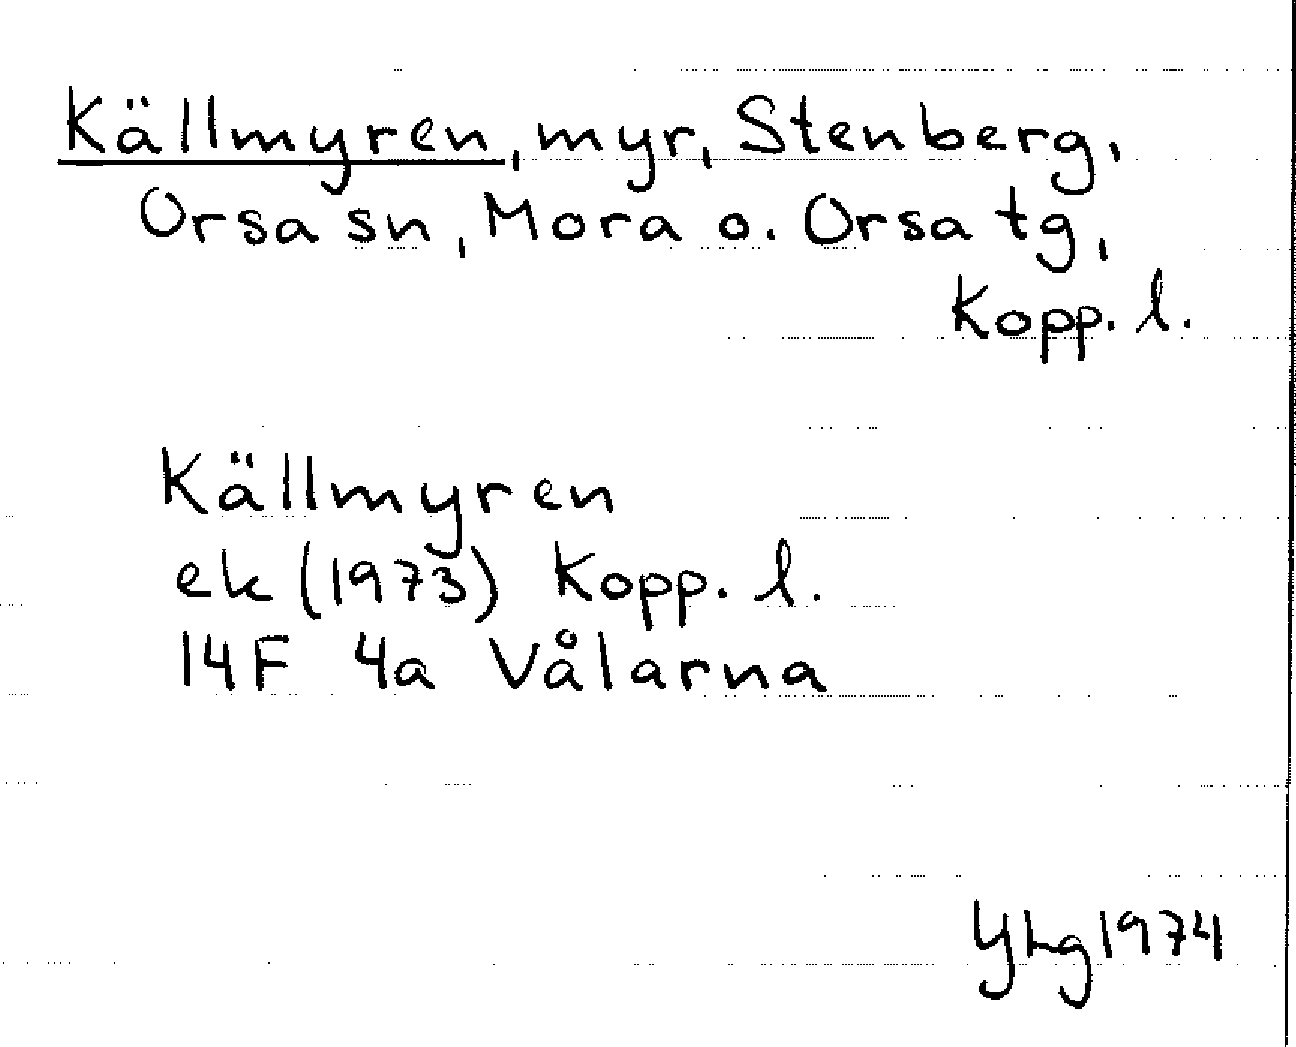 Källmyren, myr, Stenberg,
Orsa sn, Mora o. Orsa tg,
Kopp. l.
Källmyren
ek (1973) Kopp. l.
14F 4a Vålarna
YLg 1974